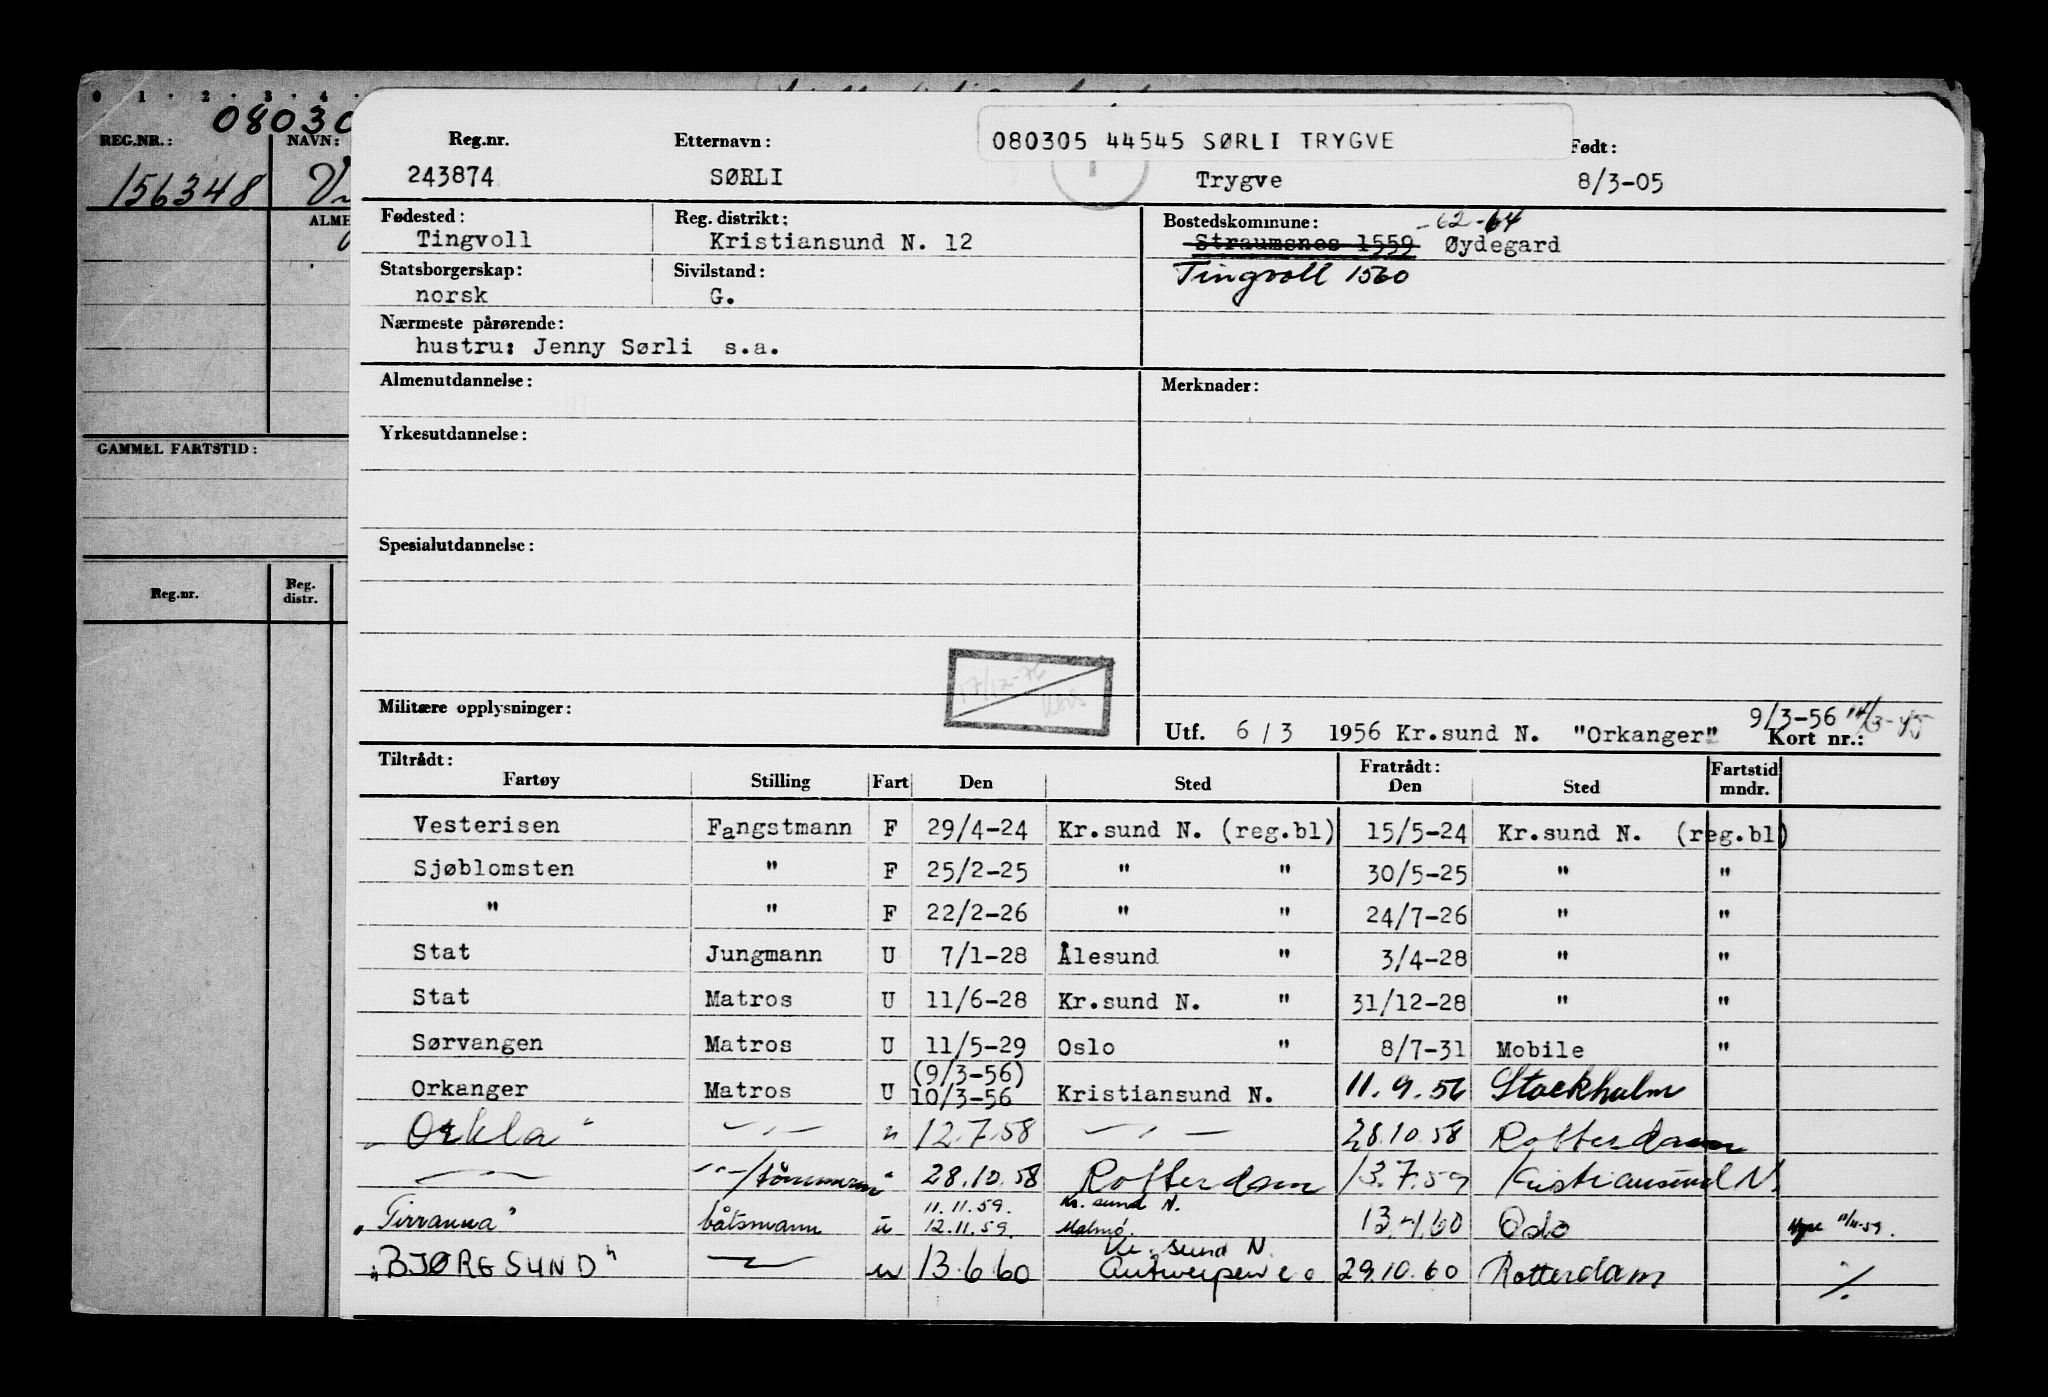 0 1 2 3 4
08030
REG.NR.: NAVN:
156348
GAMMEL FARTSTID:
Reg.nr. Reg. distr.
080305 44545 SØRLI TRYGVE
Reg.nr. Etternavn: Født:
243874 SØRLI Trygve 8/3-05
Fødested: Reg. distrikt: Bostedskommune: -62-64
Tingvoll Kristiansund N. 12 Straumsnes 1559 Øydegard
Statsborgerskap: Sivilstand: Tingvoll 1560
norsk G.
Nærmeste pårørende:
hustru: Jenny Sørli s.a.
Almenutdannelse: Merknader:
Yrkesutdannelse:
Spesialutdannelse:
17/12-76
Militære opplysninger: 9/3-56
Utf. 6/3 1956 Kr.sund N. "Orkanger" Kort nr.:
Tiltrådt: Fratrådt: Fartstid
Fartøy Stilling Fart Den Sted Den Sted mndr.
Vesterisen Fangstmann F 29/4-24 Kr.sund N. (reg.bl) 15/5-24 Kr.sund N. (reg.bl)
Sjøblomsten " F 25/2-25 " " 30/5-25 " "
" " F 22/2-26 " " 24/7-26 " "
Stat Jungmann U 7/1-28 Ålesund " 3/4-28 " "
Stat Matros U 11/6-28 Kr.sund N. " 31/12-28 " "
Sørvangen Matros U 11/5-29 Oslo " 8/7-31 Mobile "
(9/3-56)
Orkanger Matros U 10/3-56 Kristiansund N. 11.9.56 Stockholm
"Orkla" —"— " 12.7.58 —"— 28.10.58 Rotterdam
—"— —"—/tømmerm " 28.10.58 Rotterdam 13.7.59 Kristiansund N
11.11.59. Kr.sund N.
"Tirranna" båtsmann u 12.11.59. Malmö 13.4.60 Oslo 11/11-59.
Kr.sund N.
"BJØRGSUND" —"— u 13.6.60 Antwerpen e.o 29.10.60 Rotterdam ./.